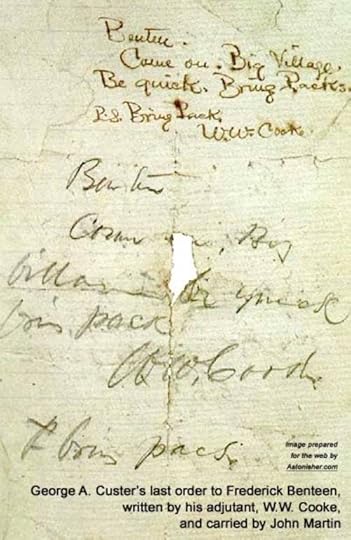 Benteen.
Come on. Big Village.
Be quick. Bring Packs.
P.S. Bring Pack
W.W. Cooke
Benteen
Come on, Big
Village be quick
bring packs
W.W. Cooke
P bring pacs
Image prepared
for the web by
Astonisher.com
George A. Custer's last order to Frederick Benteen,
written by his adjutant, W.W. Cooke,
and carried by John Martin